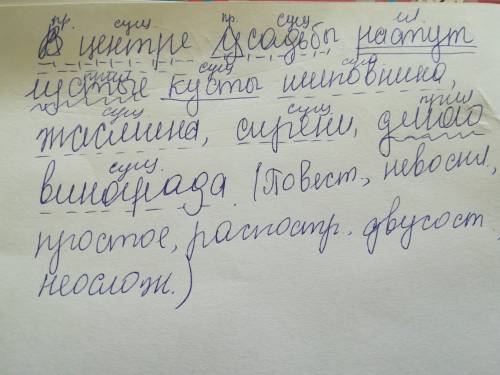 пр. сущ пр. сущ гл
В центре усадьбы растут
прил сущ сущ
густые кусты шиповника,
сущ сущ прил
жасмина, сирени, дикого
сущ.
винограда. (Повест., невоскл.,
простое, распостр. двусост
неослож.)